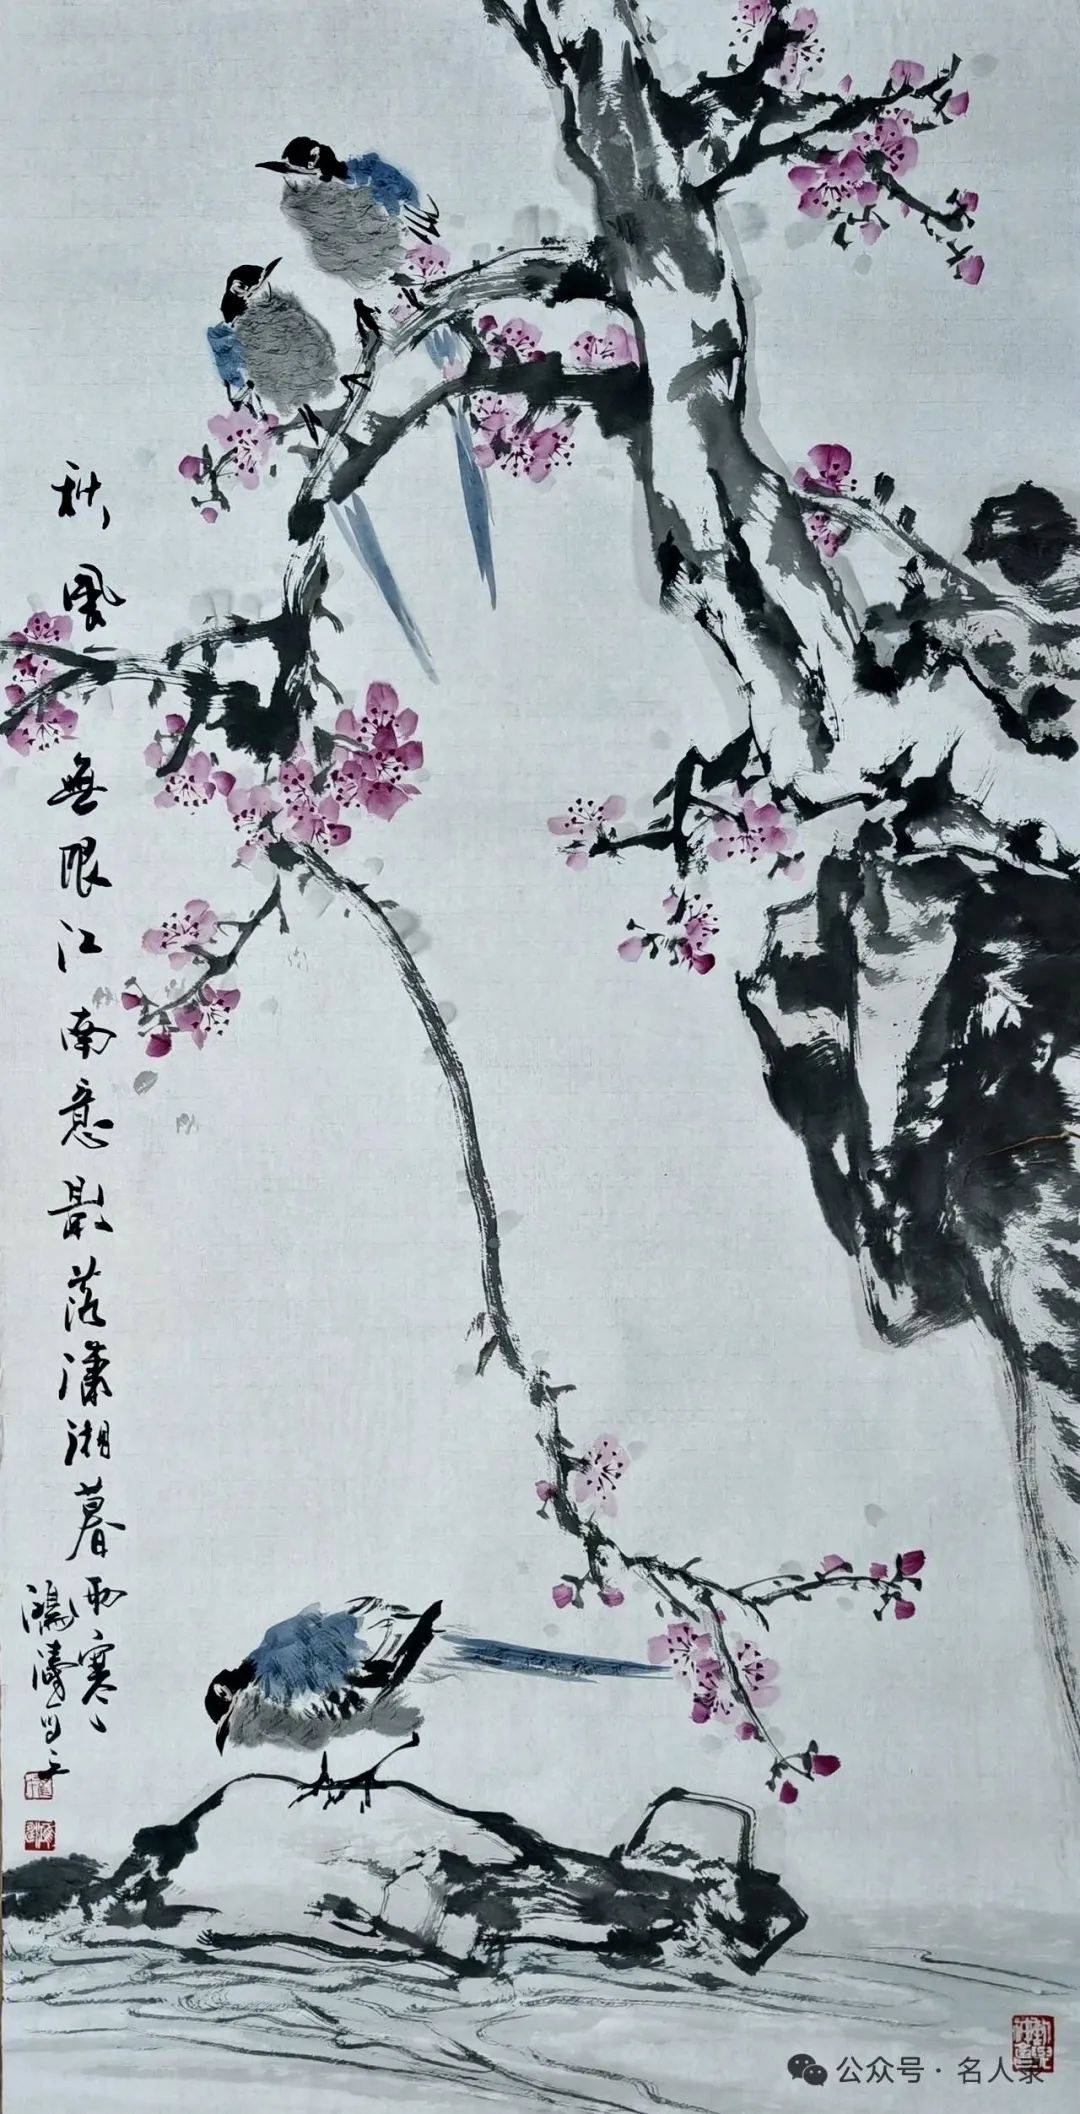 秋风無限江南意最落瀟湘暮雨寒
鴻濤写
公众号 · 名人录